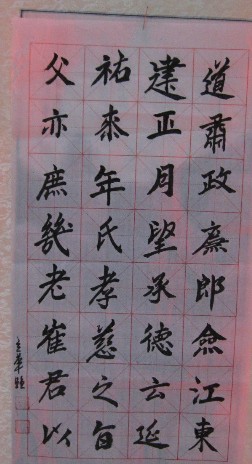 道肅政廉郎僉江東
建正月望承德云延
祐桼年氏孝慈之旨
父亦庶幾老崔君以